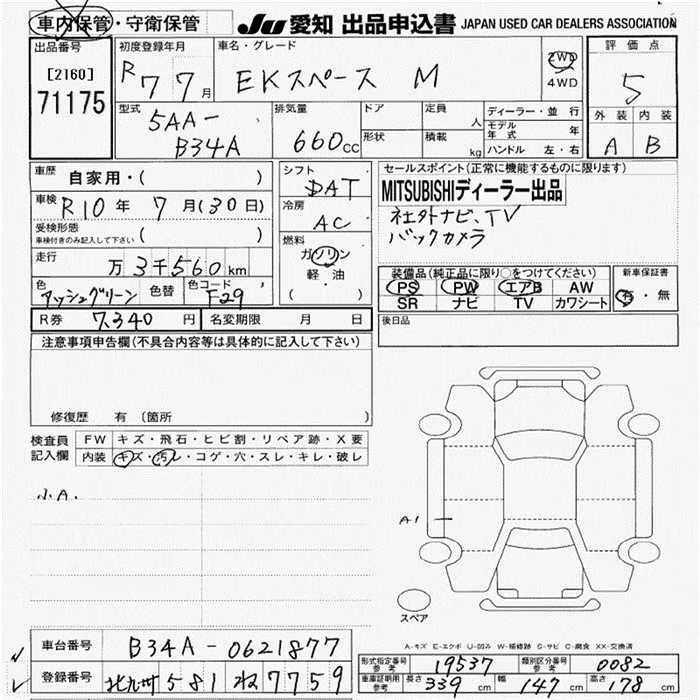 車内保管・守衛保管
JU 愛知 出品申込書 JAPAN USED CAR DEALERS ASSOCIATION
出品番号
[2160]
71175
初度登録年月
R 7 7 月
車名・グレード
EKスペース M
2WD
4WD
評価点
5
外装 内装
A B
型式
5AA-
B34A
排気量
660 CC
ドア
形状
定員
人
積載
kg
ディーラー・並行
モデル年式 年
ハンドル 左・右
車歴
自家用・( )
車検 R10 年 7 月(30日)
受検形態
車検付きのみ記入して下さい ( )
走行
万 3千560 km
色
アッシュグリーン
色替
色コード
F29
シフト
DAT
冷房
AC
燃料
ガソリン
軽油
( )
セールスポイント(正常に機能するものに限ります)
MITSUBISHIディーラー出品
社外ナビ、TV
バックカメラ
装備品(純正品に限り○をつけてください)
PS PW エアB AW
SR ナビ TV カワシート
新車保証書
有・無
R券 7,340 円
名変期限 月 日
後日品
注意事項申告欄(不具合内容等は具体的に記入して下さい)
修復歴 有 (箇所 )
検査員
記入欄
FW キズ・飛石・ヒビ割・リペア跡・X要
内装 キズ・汚レ・コゲ・穴・スレ・キレ・破レ
小A.
A1
スペア
A-キズ E-エクボ U-凹み W-補修跡 S-サビ C-腐食 XX-交換済
車台番号 B34A-0621877
登録番号 北九州 581 ね 7759
型式指定番号
参考
19537
類別区分番号
参考
0082
車庫証明用
参考
長さ 339 cm 幅 147 cm 高さ 178 cm